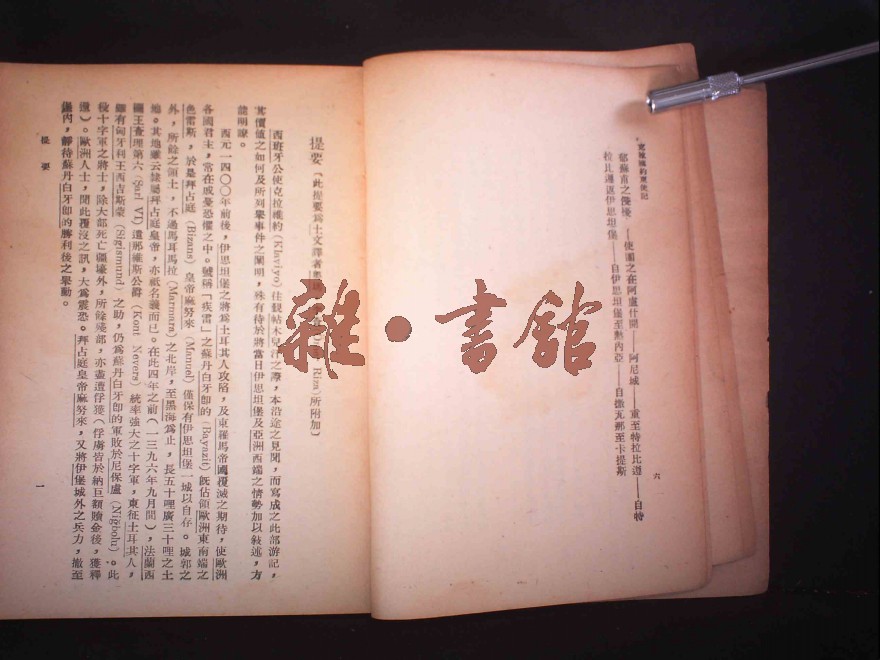 克拉維約東使記
都蘇甫之侵後——使團之在阿盧什開——阿尼城——重至特拉比遜——自特
拉比遜返伊思坦堡——自伊思坦堡至熱內亞——自撒瓦那至卡提斯
六
提要「此提要爲土文譯者 Riza)所附加」
西班牙公使克拉維約(Klaviyo)往聲帖木兒汗之譚,本沿途之見聞,而寫成之此部游記,
其價値之如何及所列舉事件之闡明,殊有待於將當日伊思坦堡及亞洲西端之情勢加以敍述,方
能明瞭。
西元一四〇〇年前後,伊思坦堡之將爲土耳其人攻陷,及東羅馬帝國覆滅之期待,使歐洲
各國君主,常在戚憂恐懼之中。號稱「疾雷」之蘇丹白牙卽的(Bayazit)旣佔領歐洲東南端之
色雷斯,於是拜占庭(Bizans)皇帝麻努來(Manuel)僅保有伊思坦堡一城以自存。城郭之
外,所餘之領土,不過馬耳馬拉(Marmara)之北岸,至黑海爲止,長五十哩廣三十哩之土
地。其地雖云隸屬拜占庭皇帝,亦祇名義而已。在此四年之前(一三九六年九月間),法蘭西
國王查理第六(Şarl VI)遣那維斯公爵(Kont Nevers)統率強大之十字軍,東征土耳其人,
雖有匈牙利王西吉斯蒙(Sigismund)之助,仍爲蘇丹白牙卽的軍敗於尼保盧(Niğbolu)。此
役十字軍之將士,除大部死亡疆場外,所餘殘部,亦盡遭俘獲(俘虜皆於納巨額贖金後,獲釋
還)。歐洲人士,聞此覆沒之訊,大爲震恐。拜占庭皇帝麻努來,又將伊堡城外之兵力,撤至
堡內,靜待蘇丹白牙卽的勝利後之舉動。
提要
一
雜·書館